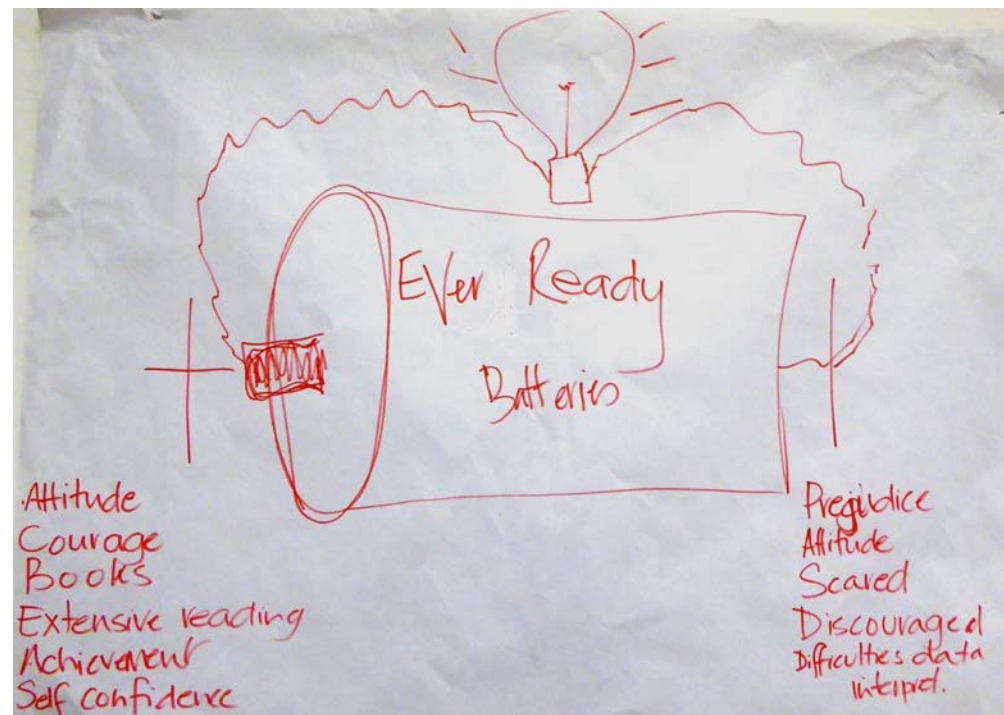 Ever Ready
Batteries
Attitude
Courage
Books
Extensive reading
Achievement
Self confidence
Prejudice
Attitude
Scared
Discouraged
Difficulties data
interpret.